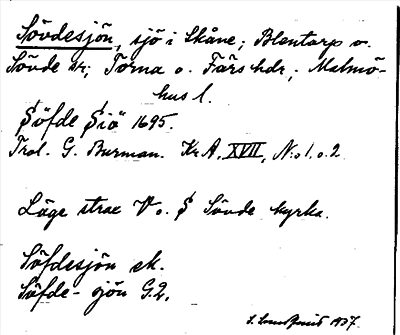 Sövdesjön, sjö i Skåne; Blentarp o.
Sövde sn; Torna o. Färs hdr; Malmö-
hus l.
Söfde Siö 1695.
Trol. G. Burman. Kr A. XVII, No 1. o. 2
Läge strax V o. S Sövde kyrka.
Söfdesjön ek.
Söfde-sjön G. 2.
1937.